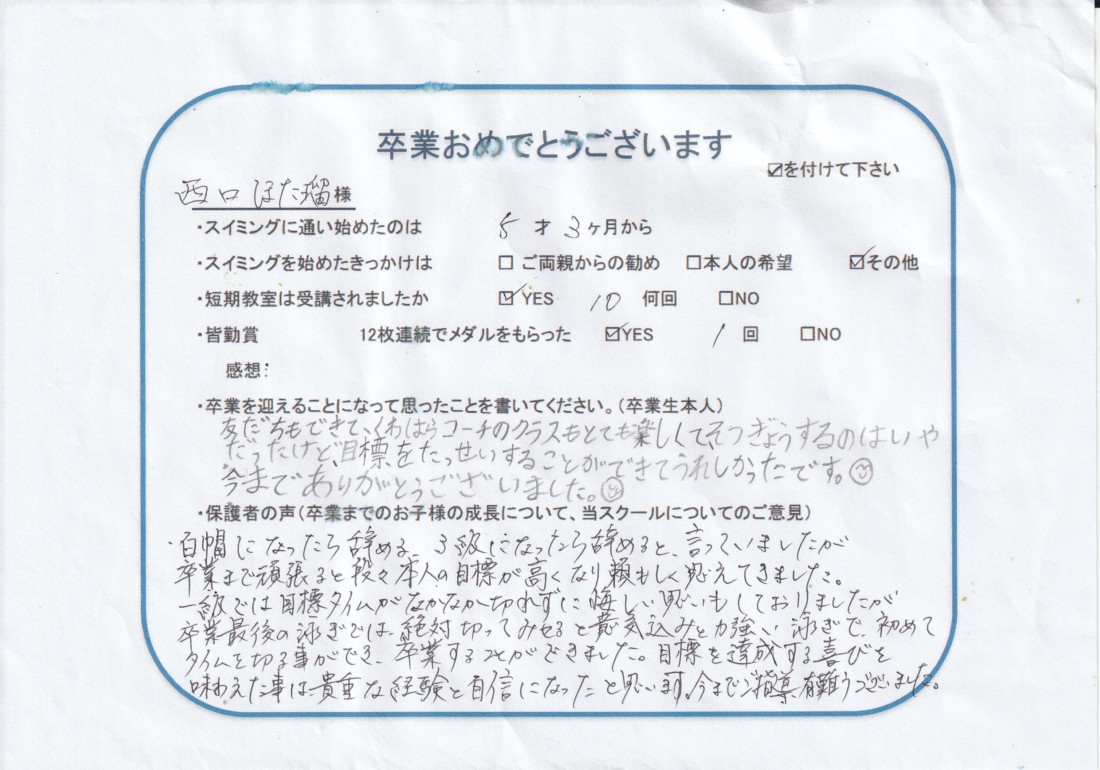 卒業おめでとうございます
☑を付けて下さい
西口 ほた瑠 様
・スイミングに通い始めたのは 5 才 3 ヶ月から
・スイミングを始めたきっかけは □ ご両親からの勧め □本人の希望 ☑その他
・短期教室は受講されましたか ☑YES 10 何回 □NO
・皆勤賞 12枚連続でメダルをもらった ☑YES 1 回 □NO
感想:
・卒業を迎えることになって思ったことを書いてください。(卒業生本人)
友だちもできて、くわはらコーチのクラスもとても楽しくてそつぎょうするのはいや
だったけど、目標をたっせいすることができてうれしかったです。
今までありがとうございました。
・保護者の声(卒業までのお子様の成長について、当スクールについてのご意見)
・白帽になったら辞める、3級になったら辞めると、言っていましたが
卒業まで頑張ると段々本人の目標が高くなり頼もしく思えてきました。
一級では目標タイムがなかなか切れずに悔しい思いもしておりましたが
卒業最後の泳ぎでは、絶対切ってみせると意気込みと力強い泳ぎで、初めて
タイムを切る事ができ、卒業する事ができました。目標を達成する喜びを
味わえた事は貴重な経験と自信になったと思います。今までご指導有難うございました。